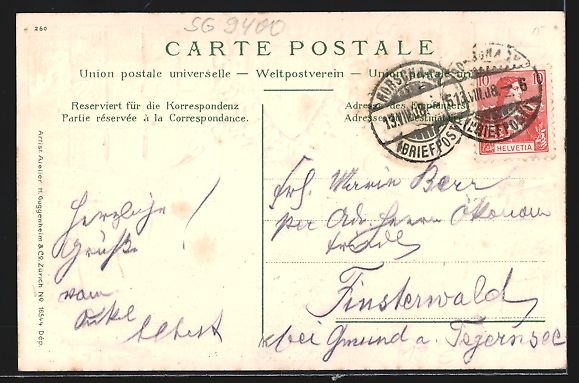 260
SG 9400
CARTE POSTALE
Union postale universelle — Weltpostverein — Union postale
Reserviert für die Korrespondenz
Partie réservée à la Correspondance.
Adresse des Empfängers
RORSCHACH
13.VIII.08.
(BRIEFPOST)
13.VIII.08.-6
(BRIEFPOST)
10
HELVETIA
Herzliche
Grüße
vom
Onkel
Albert
!
Frl. Marie Berr
per Adr. Herrn Ökonom
Finsterwald
bei Gmund a. Tegernsee
Artist. Atelier H. Guggenheim & Co., Zürich No. 16544 Dép.